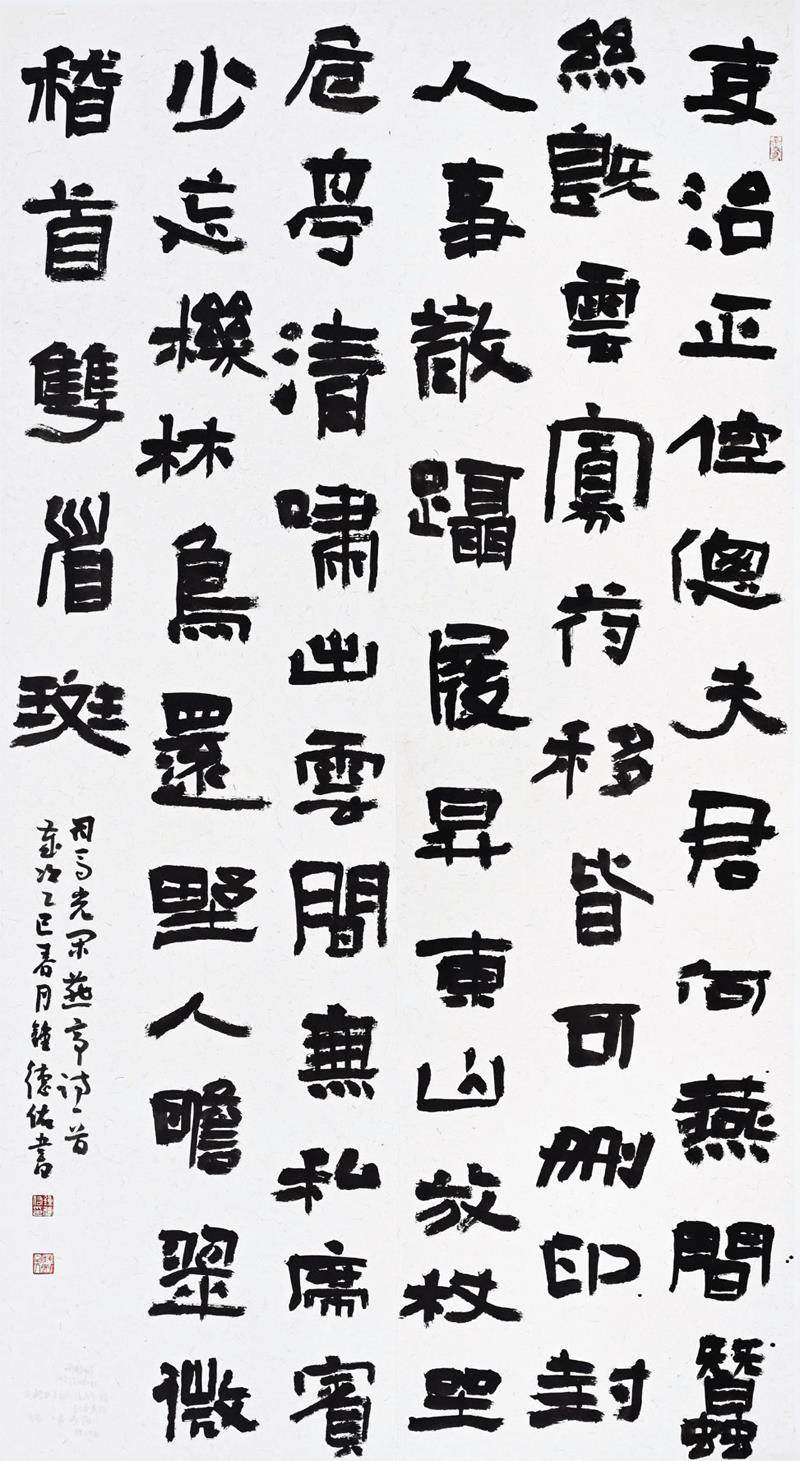 吏治正倥傯夫君何燕間蠶
絲既雲寡苻移皆可刪印封
人事散躡履昇東山放杖坐
危亭清嘯出雲間無私席賓
少忘機林鳥還野人瞻翠微
稽首雙眉斑
司馬光閑燕亭詩一首
歲次乙巳春月鐘德佑書